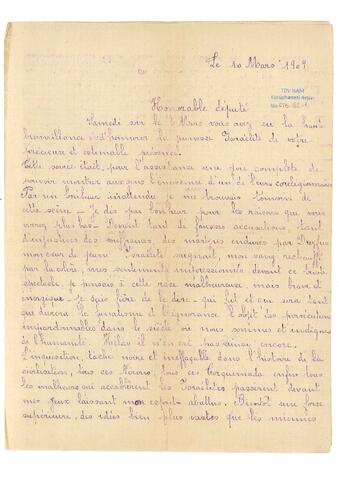 Le 10 Mars 1909
TDV İSAM
Kütüphanesi Arşivi
No
Honorable député
Samedi soir le Mars vous avez eu la haute
bienveillance d'honorer la jeunesse Israélite de votre
précieuse et estimable présence.
Cette soirée était pour l'assistance une joie complète de
pouvoir montrer aux yeux l'innocence d'un de leurs coreligionnaires
Par un bonheur inattendu je me trouvais témoin de
cette scène - Je dis par bonheur pour les raisons que vous
verrez plus bas - Devant tant de fausses accusations, tant
d'injustices des souffrances, des martyres endurés par Dreyfus
mon cœur de jeune Israélite saignait, mon sang réchauffé
par la colère, mes sentiments impressionnés devant ce triste
spectacle, je pensais à cette race malheureuse, mais brave et
énergique - Je suis fière de le dire - qui fut et que sera tant
que durera le fanatisme et l'ignorance l'objet des persécutions
impardonnables dans le siècle où nous sommes et indignes
de l'humanité. Hélas il n'en est pas ainsi encore.
L'inquisition, tache noire et ineffaçable dans l'histoire de la
civilisation, tous ces Nérons, tous ces Torquemada enfin tous
les malheurs qui accablèrent les Israélites passèrent devant
mes yeux laissant mon esprit abattu. Bientôt une force
supérieure, des idées bien plus vastes que les miennes